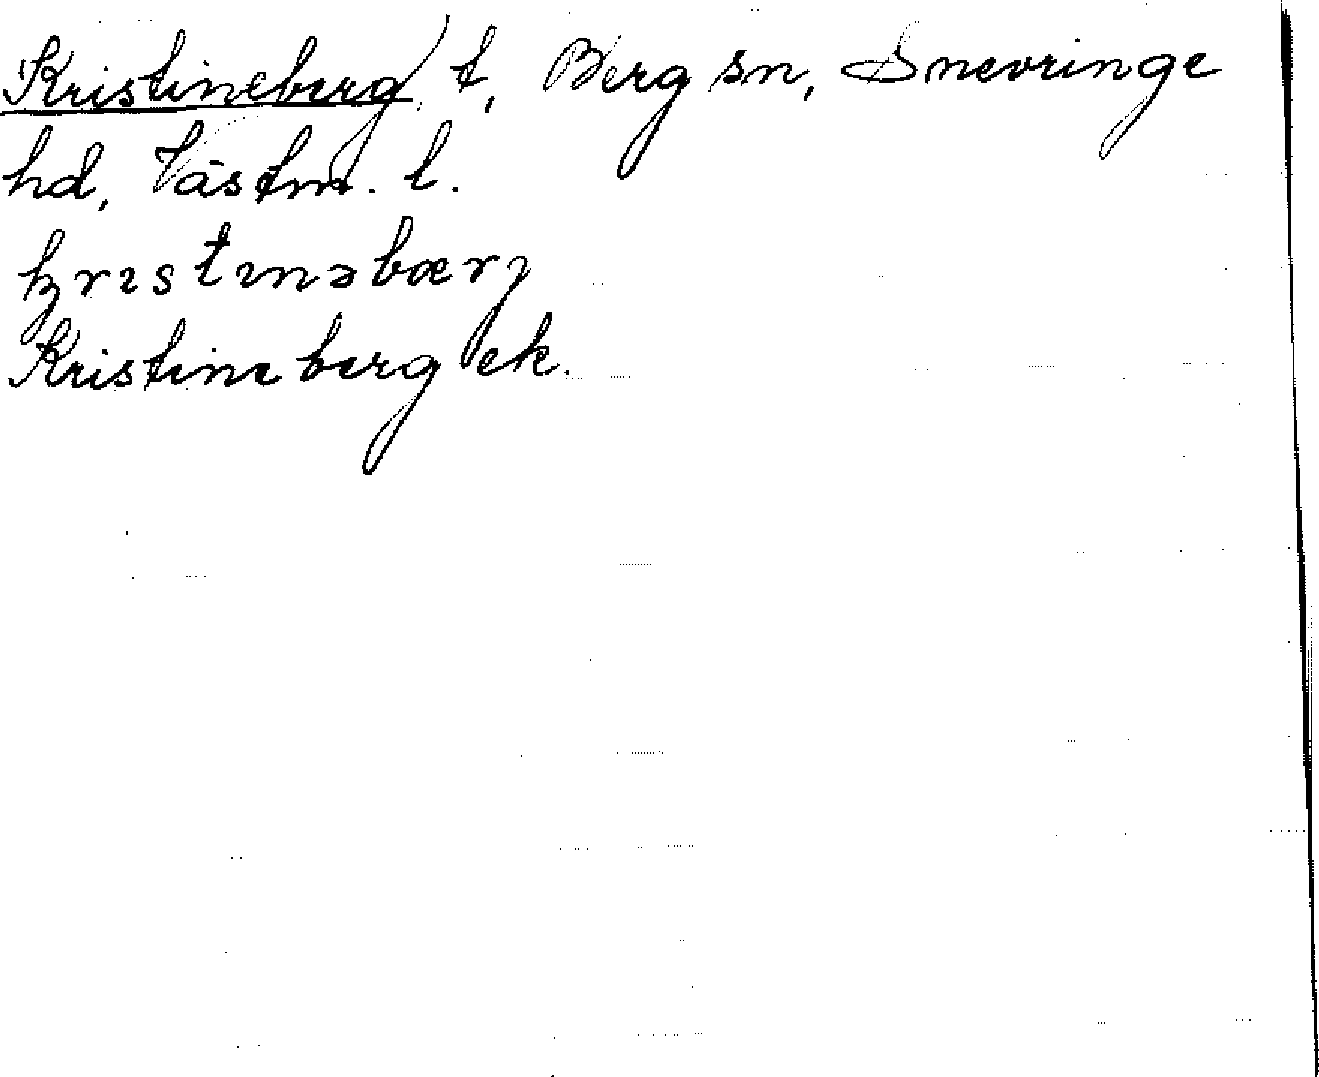 Kristineberg, t, Berg sn, Snevringe
hd, Västm. l.
krɪstɪnəbærj
Kristineberg ek.